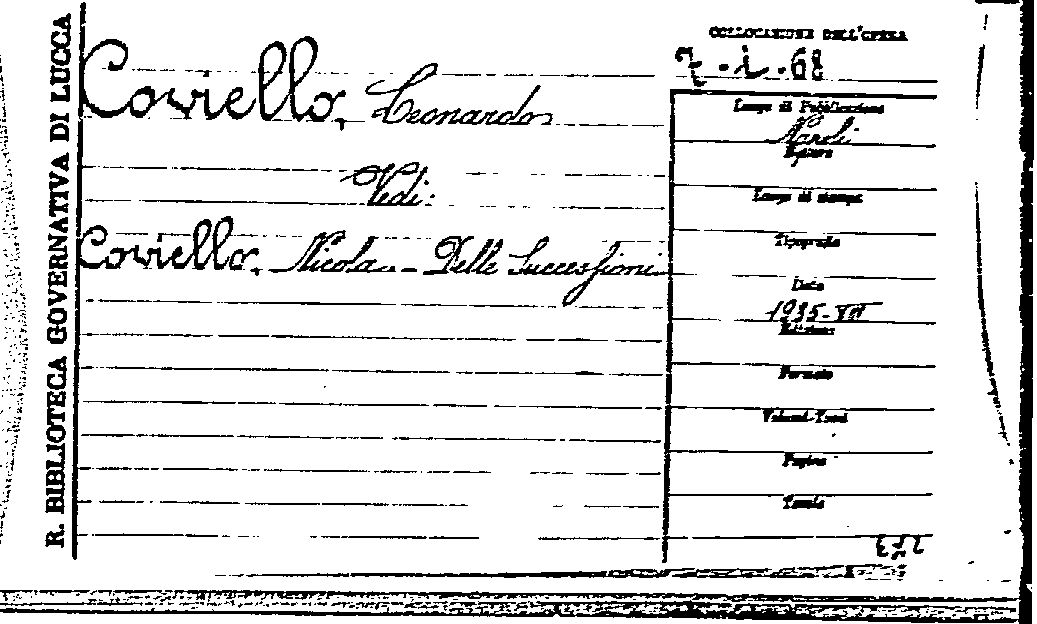 R. BIBLIOTECA GOVERNATIVA DI LUCCA
COLLOCAZIONE DELL'OPERA
7.i.68
Coviello, Leonardo
Vedi:
Coviello, Nicola - Delle Successioni
Luogo di Pubblicazione
Napoli
Editore
Luogo di stampa
Tipografia
Data
1935-
Edizione
Formato
Volumi-Tomi
Pagine
Tavole